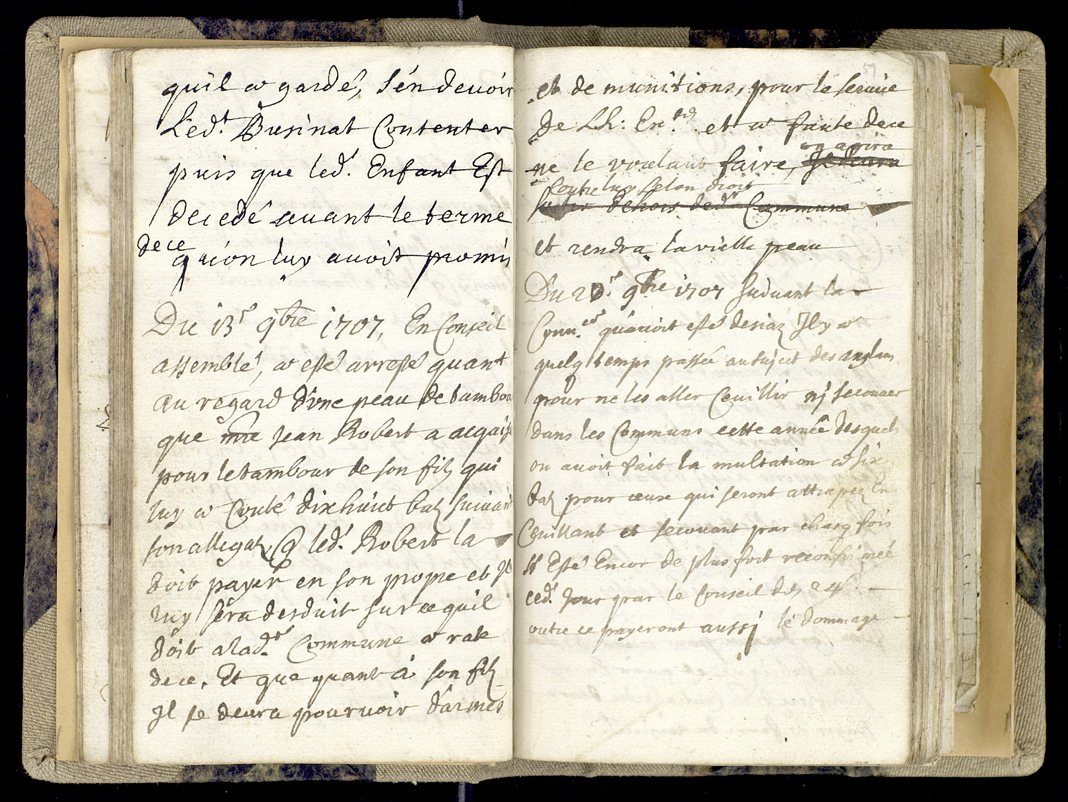 quil a gardé, s'en devoir
Led.t Businat Contenter
puis que led.t Enfant Est
decedé avant le terme
dece
quion luy avoit promis
Du 13.e 9bre 1707, En Conseil
assemblé, a esté arresté quant
au regard d'une peau de tambour
que me Jean Robert a acquis
pour le tambour de son filz qui
luy a Couté dixhuict batz suivant
son allegat, Q led.t Robert la
doit payer en son propre et Il
luy sera desduit sur ce quil
doit a lad.te Commune a rate
dece. Et que quant à son filz
Il se devra pourvoir d'armes
et de munitions, pour le service
De LL: Ex.ces et a faute dece
on agira
ne le voulant faire,
Contre luy selon droit
dehors ded.te Commune
et rendra la vielle peau
Du 20.e 9bre 1707 suivant la
Conn.ce qu'avoit esté desiaz Il y a
quelq temps passée au sujet des anglan
pour ne les aller Ceuillir nj secouer
dans les Communs cette année desquels
on avoit fait la multation a six
batz pour ceux qui seront attrapez En
Ceuillant et secouant par chasq fois
A Esté Encor de plus fort reconfirmée
ced.t Jour par le Conseil des 24
outre ce payeront aussj le dommage